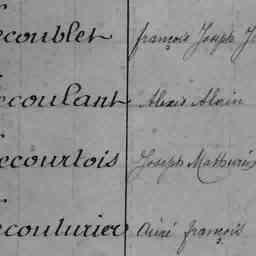 ecoublet françois Joseph
ecoulant Alexis Alain
ecourtois Joseph Mathurin
ecouturier Aimé françois